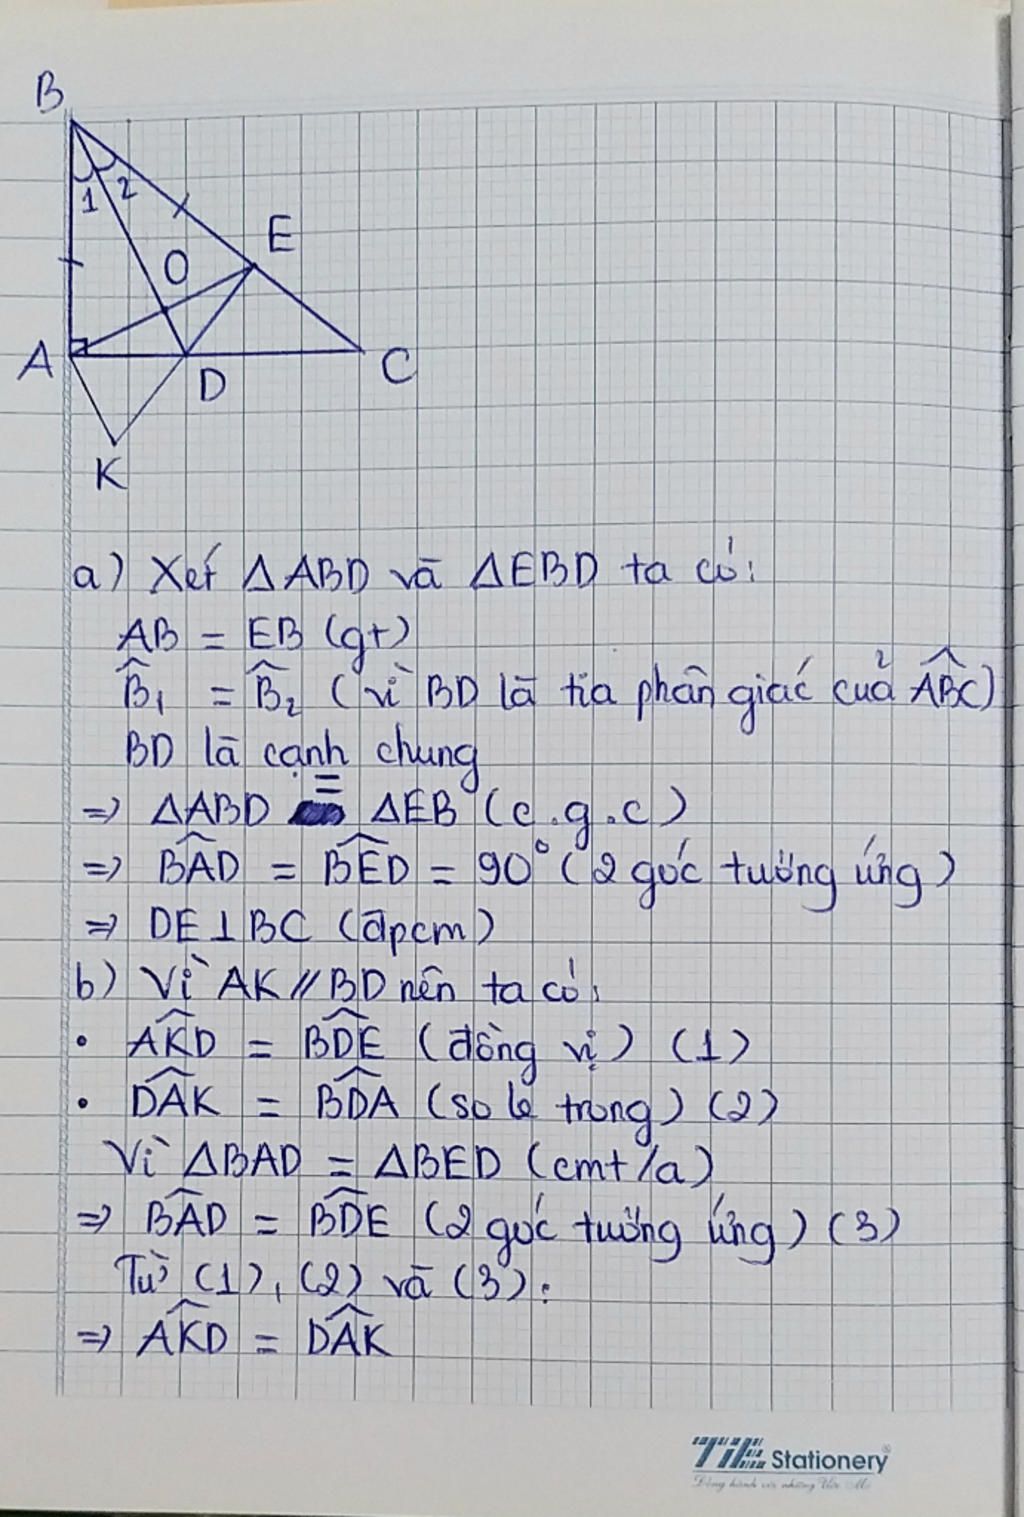 B
1 2
E
O
A
D
C
K
a) Xét ΔABD và ΔEBD ta có:
AB = EB (gt)
B̂₁ = B̂₂ (vì BD là tia phân giác của ABC)
BD là cạnh chung
⇒ ΔABD = ΔEB (c.g.c)
⇒ BAD = BED = 90° (2 góc tương ứng)
⇒ DE⊥BC (đpcm)
b) Vì AK // BD nên ta có:
• AKD = BDE (đồng vị) (1)
• DAK = BDA (so le trong) (2)
Vì ΔBAD = ΔBED (cmt/a)
⇒ BAD = BDE (2 góc tương ứng) (3)
Từ (1), (2) và (3):
⇒ AKD = DAK
TiE Stationery®
Đồng hành với những Ước Mơ